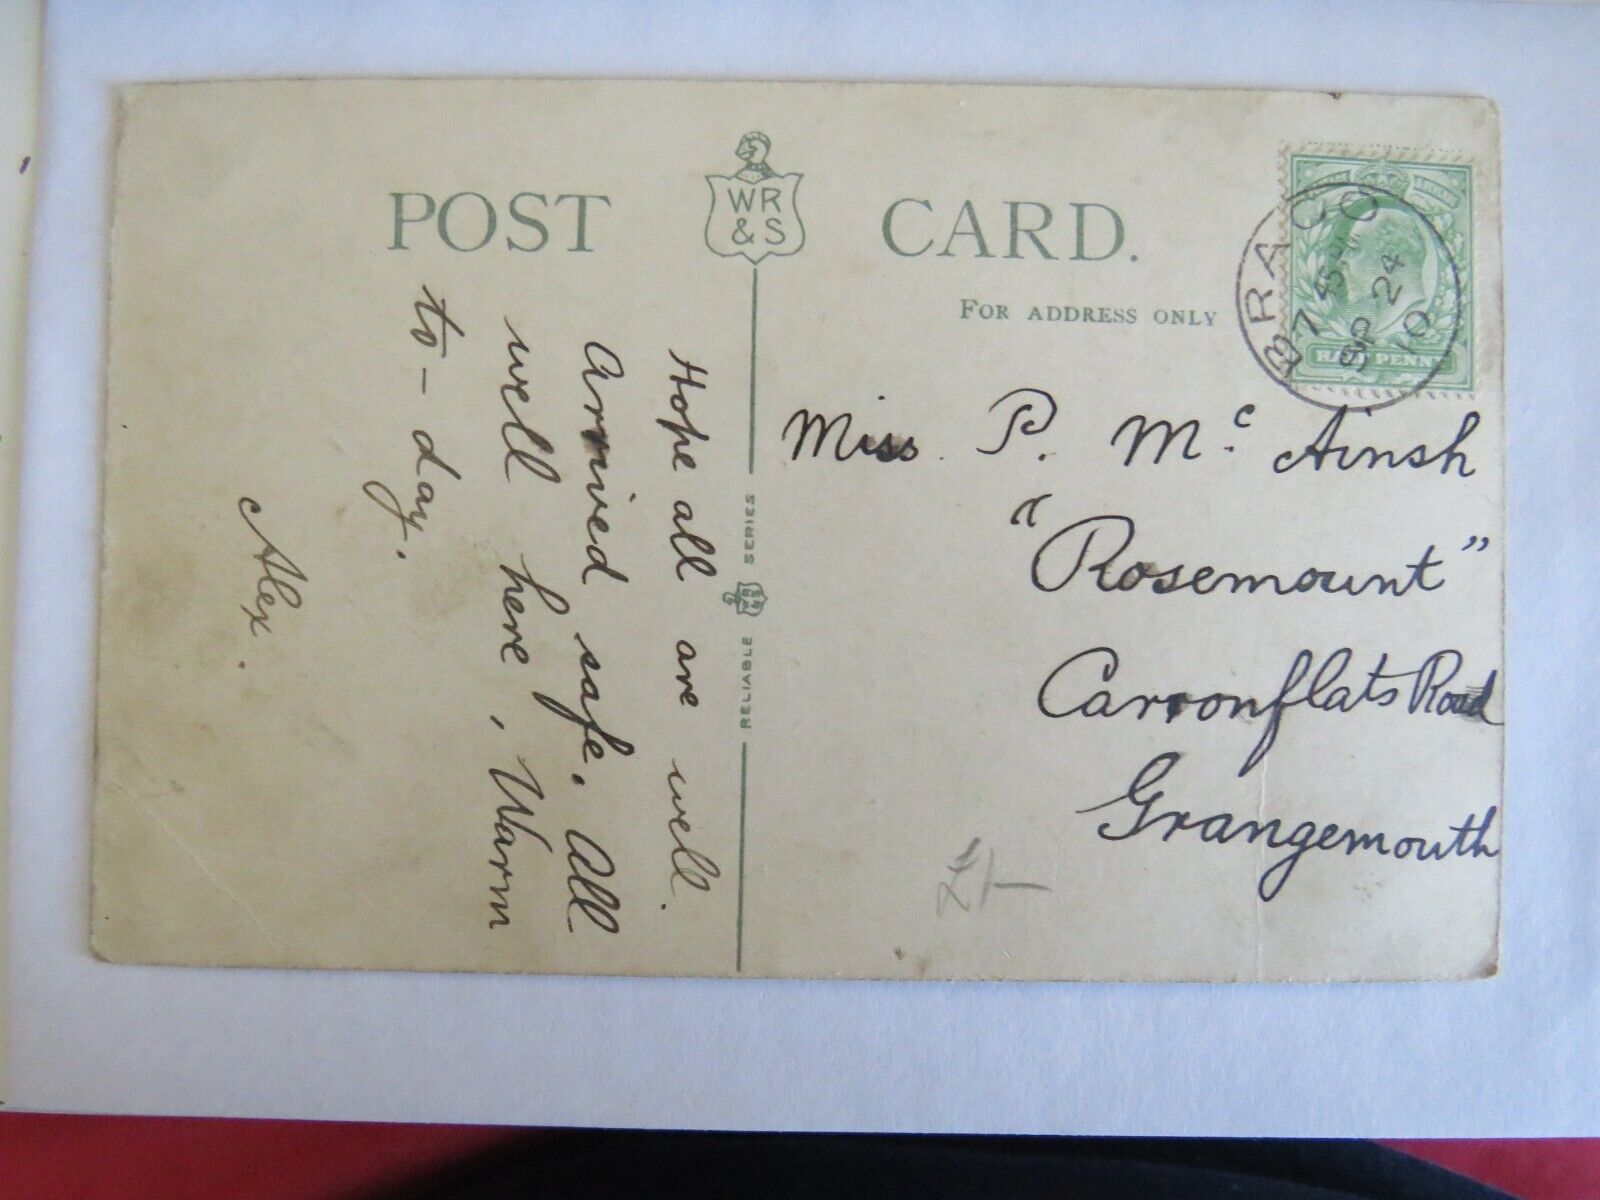 POST CARD.
WR
& S
FOR ADDRESS ONLY
BRACO
7 45
SP 24
10
HALF PENNY
Hope all are well.
Arrived safe. All
well here, Warm
to-day.
Alex.
RELIABLE WR & S SERIES
Miss. P. Mc Ainsh
"Rosemount"
Carronflats Road
Grangemouth